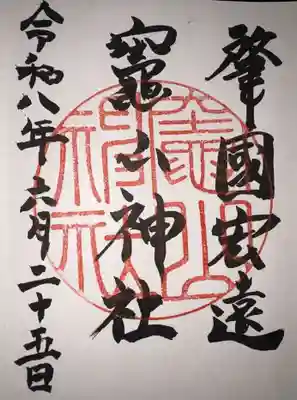 肇國宏遠
竈山神社
令和八年六月二十五日
竈山神社